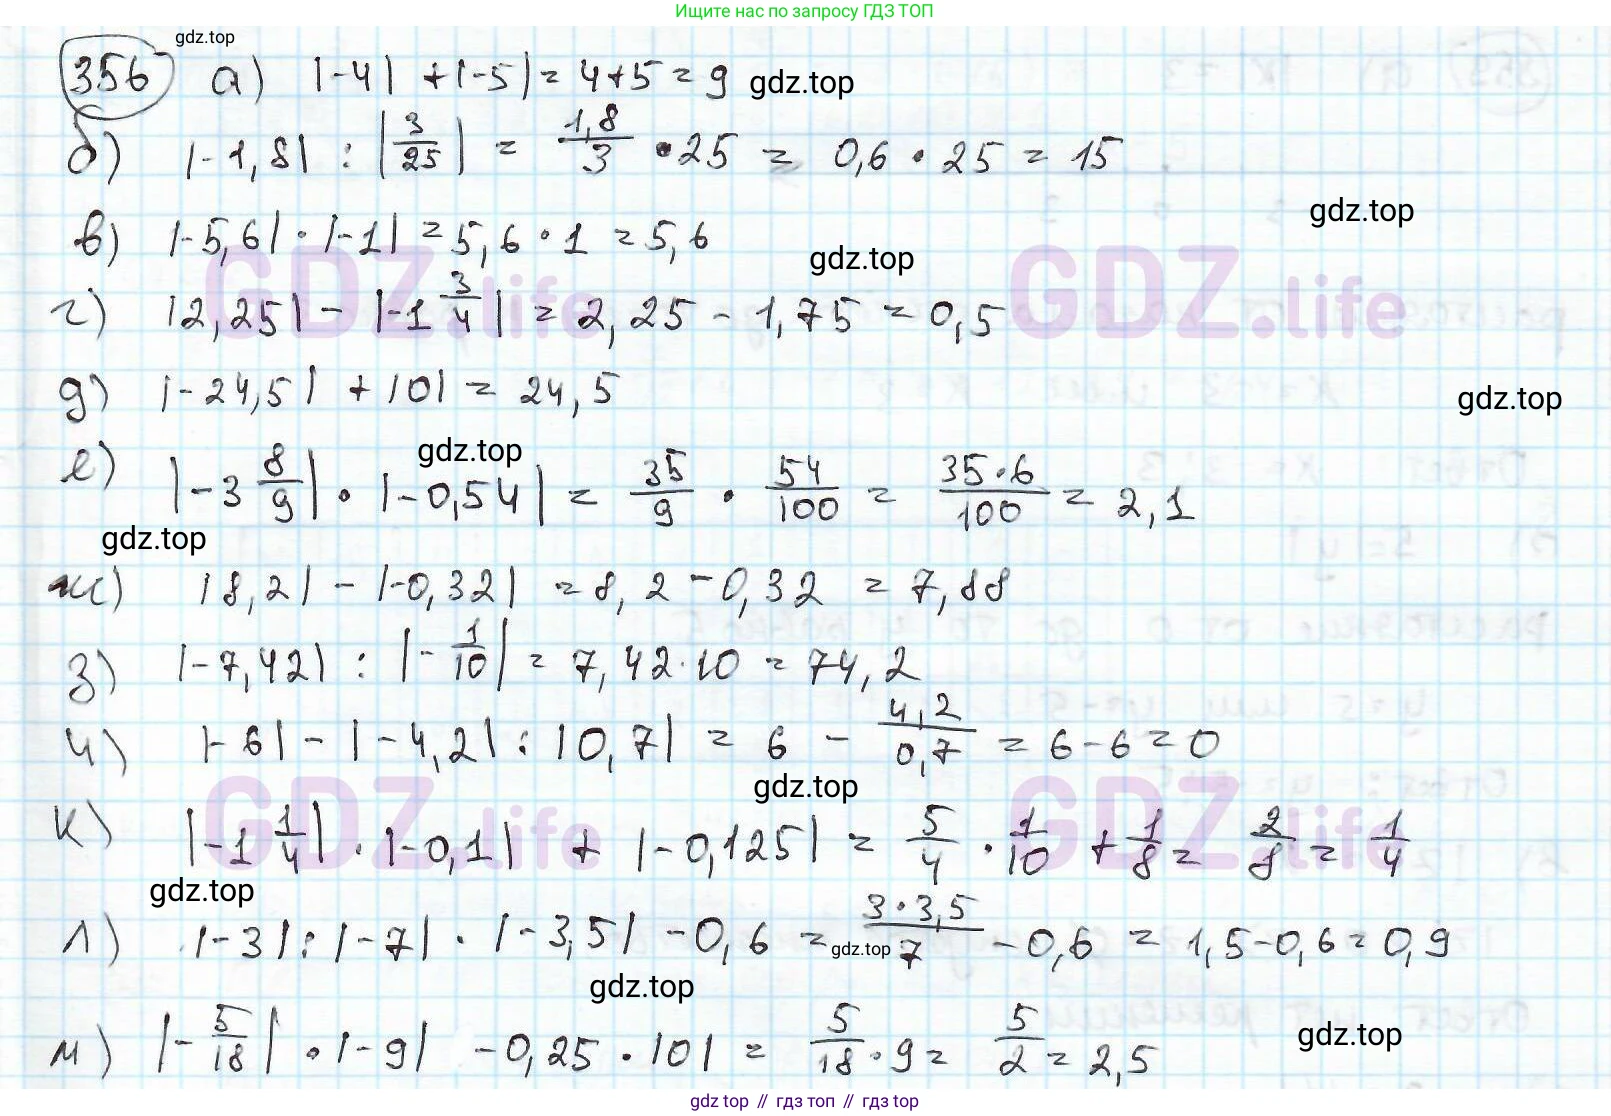 Ищите нас по запросу ГДЗ ТОП
356 gdz.top а) |-4| + |-5| = 4+5 = 9 gdz.top
б) |-1,8| : |3/25| = 1,8/3 · 25 = 0,6 · 25 = 15
gdz.top
в) |-5,6| · |-1| = 5,6 · 1 = 5,6 gdz.top
GDZ.life GDZ.life
г) |2,25| - |-1 3/4| = 2,25 - 1,75 = 0,5
д) |-24,5| + |0| = 24,5 gdz.top
gdz.top
е) |-3 8/9| · |-0,54| = 35/9 · 54/100 = 35·6/100 = 2,1
gdz.top
ж) |8,2| - |-0,32| = 8,2 - 0,32 = 7,88
з) |-7,42| : |-1/10| = 7,42·10 = 74,2
и) |-6| - |-4,2| : |0,7| = 6 - 4,2/0,7 = 6-6=0
gdz.top
GDZ.life GDZ.life
к) |-1 1/4| · |-0,1| + |-0,125| = 5/4 · 1/10 + 1/8 = 2/8 = 1/4
gdz.top
л) |-3| : |-7| · |-3,5| - 0,6 = 3·3,5/7 - 0,6 = 1,5-0,6=0,9
gdz.top
gdz.top
м) |-5/18| · |-9| - 0,25 · |0| = 5/18 · 9 = 5/2 = 2,5 gdz.top
gdz top // гдз топ // гдз top